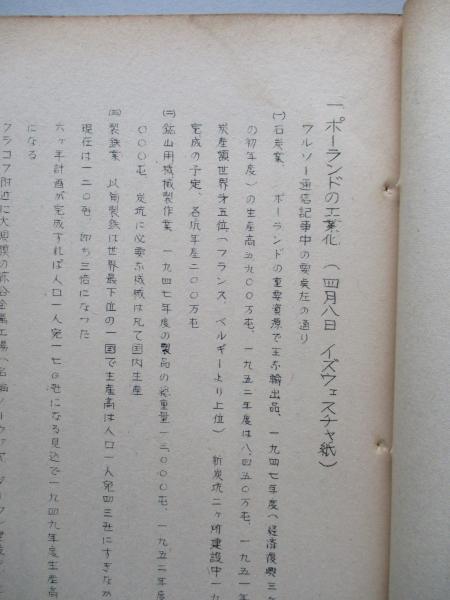 一 ポーランドの工業化 (四月八日 イズヴェスチャ紙)
ワルソー通信記事中の要点左の通り
(一)石炭業、 ポーランドの重要資源で主な輸出品、一九四七年度(経済復興三ヶ
の初年度)の生産高五九〇〇万屯、一九五二年度は八、四五〇万屯、一九五一年
炭産額世界第五位、(フランス、ベルギーより上位) 新炭坑二ヶ所建設中一九
完成の予定、各坑年産二〇〇万屯
(二)鉱山用機械製作業、一九四七年度の製品の総重量一三、〇〇〇屯、一九五二年度
〇〇〇屯 炭坑に必要な機械は凡て国内生産
(三)製鉄業、以前製鉄は世界最下位の一国で生産高は人口一人宛四三瓩にすぎなか
現在は一二〇瓩、即ち三倍になつた
六ヶ年計画が完成すれば人口一人宛一七〇瓩になる見込で一九四九年度生産高
になる
クラコフ附近に大規模の